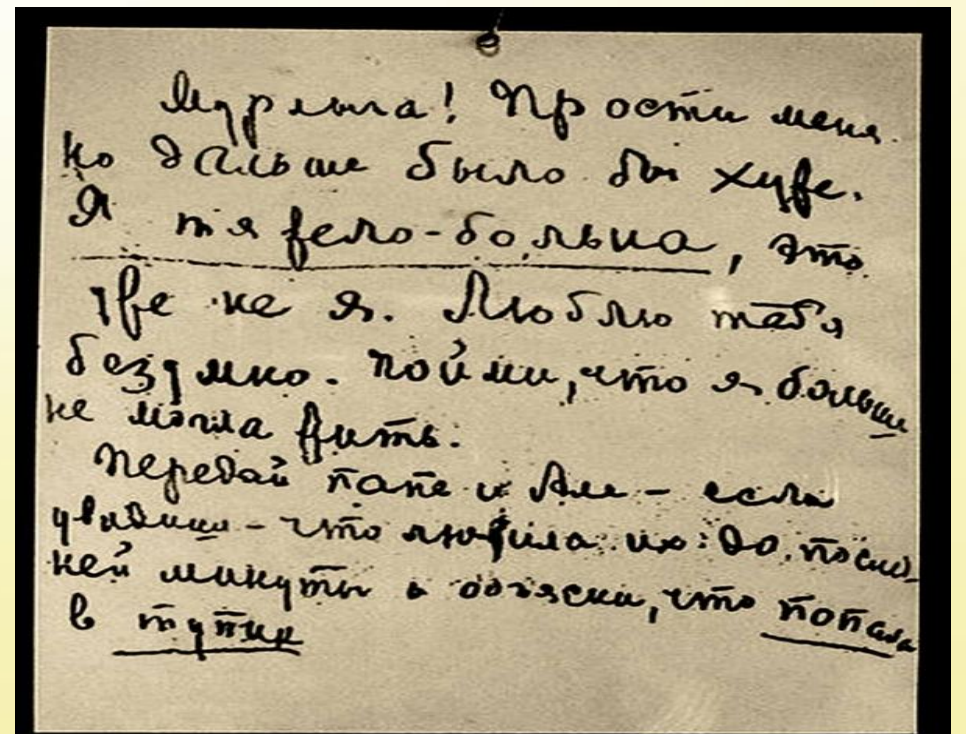 Мурлыга! Прости меня.
Но дальше было бы хуже.
Я тяжело-больна, это
уже не я. Люблю тебя
безумно. Пойми, что я больше
не могла жить.
Передай папе и Але - если
увидишь - что любила их до послед-
ней минуты и объясни, что попала
в тупик